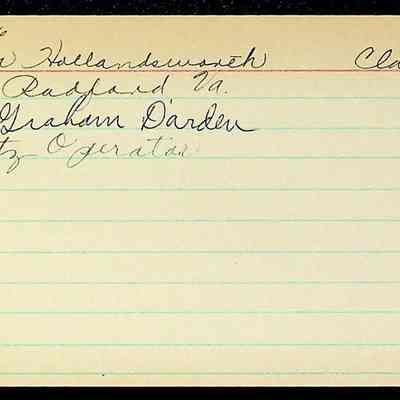 Hollandsworth Cla
Radford Va.
Graham Darden
tz Operator